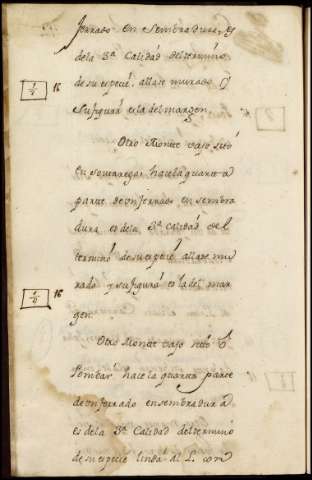 ferrado en sembradura, es
dela 3ª Calidad del termino
de su especie, allase murado y
su figura es la del margen
Otro Monte raso sito
en Souto rega, hace la quarta
parte de un ferrado en sembra
dura es dela 3ª calidad del
termino de su especie allase mu
rado y su figura es la del mar
gen
Otro Monte raso sito
hace la quarta parte
de un ferrado en sembradura
es dela 3ª Calidad del termino
de su especie linda al L. con